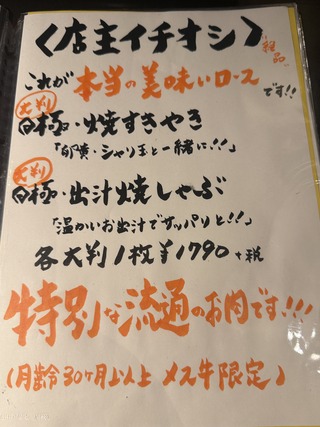 〈店主イチオシ〉
絶品
これが本当の美味いロースです!!
大判
白極・焼すきやき
「卵黄・シャリ玉と一緒に!!」
大判
白極・出汁焼しゃぶ
「温かいお出汁でサッパリと!!」
各大判1枚¥1790+税
特別な流通のお肉です!!!
(月齢30ヶ月以上 メス牛限定)